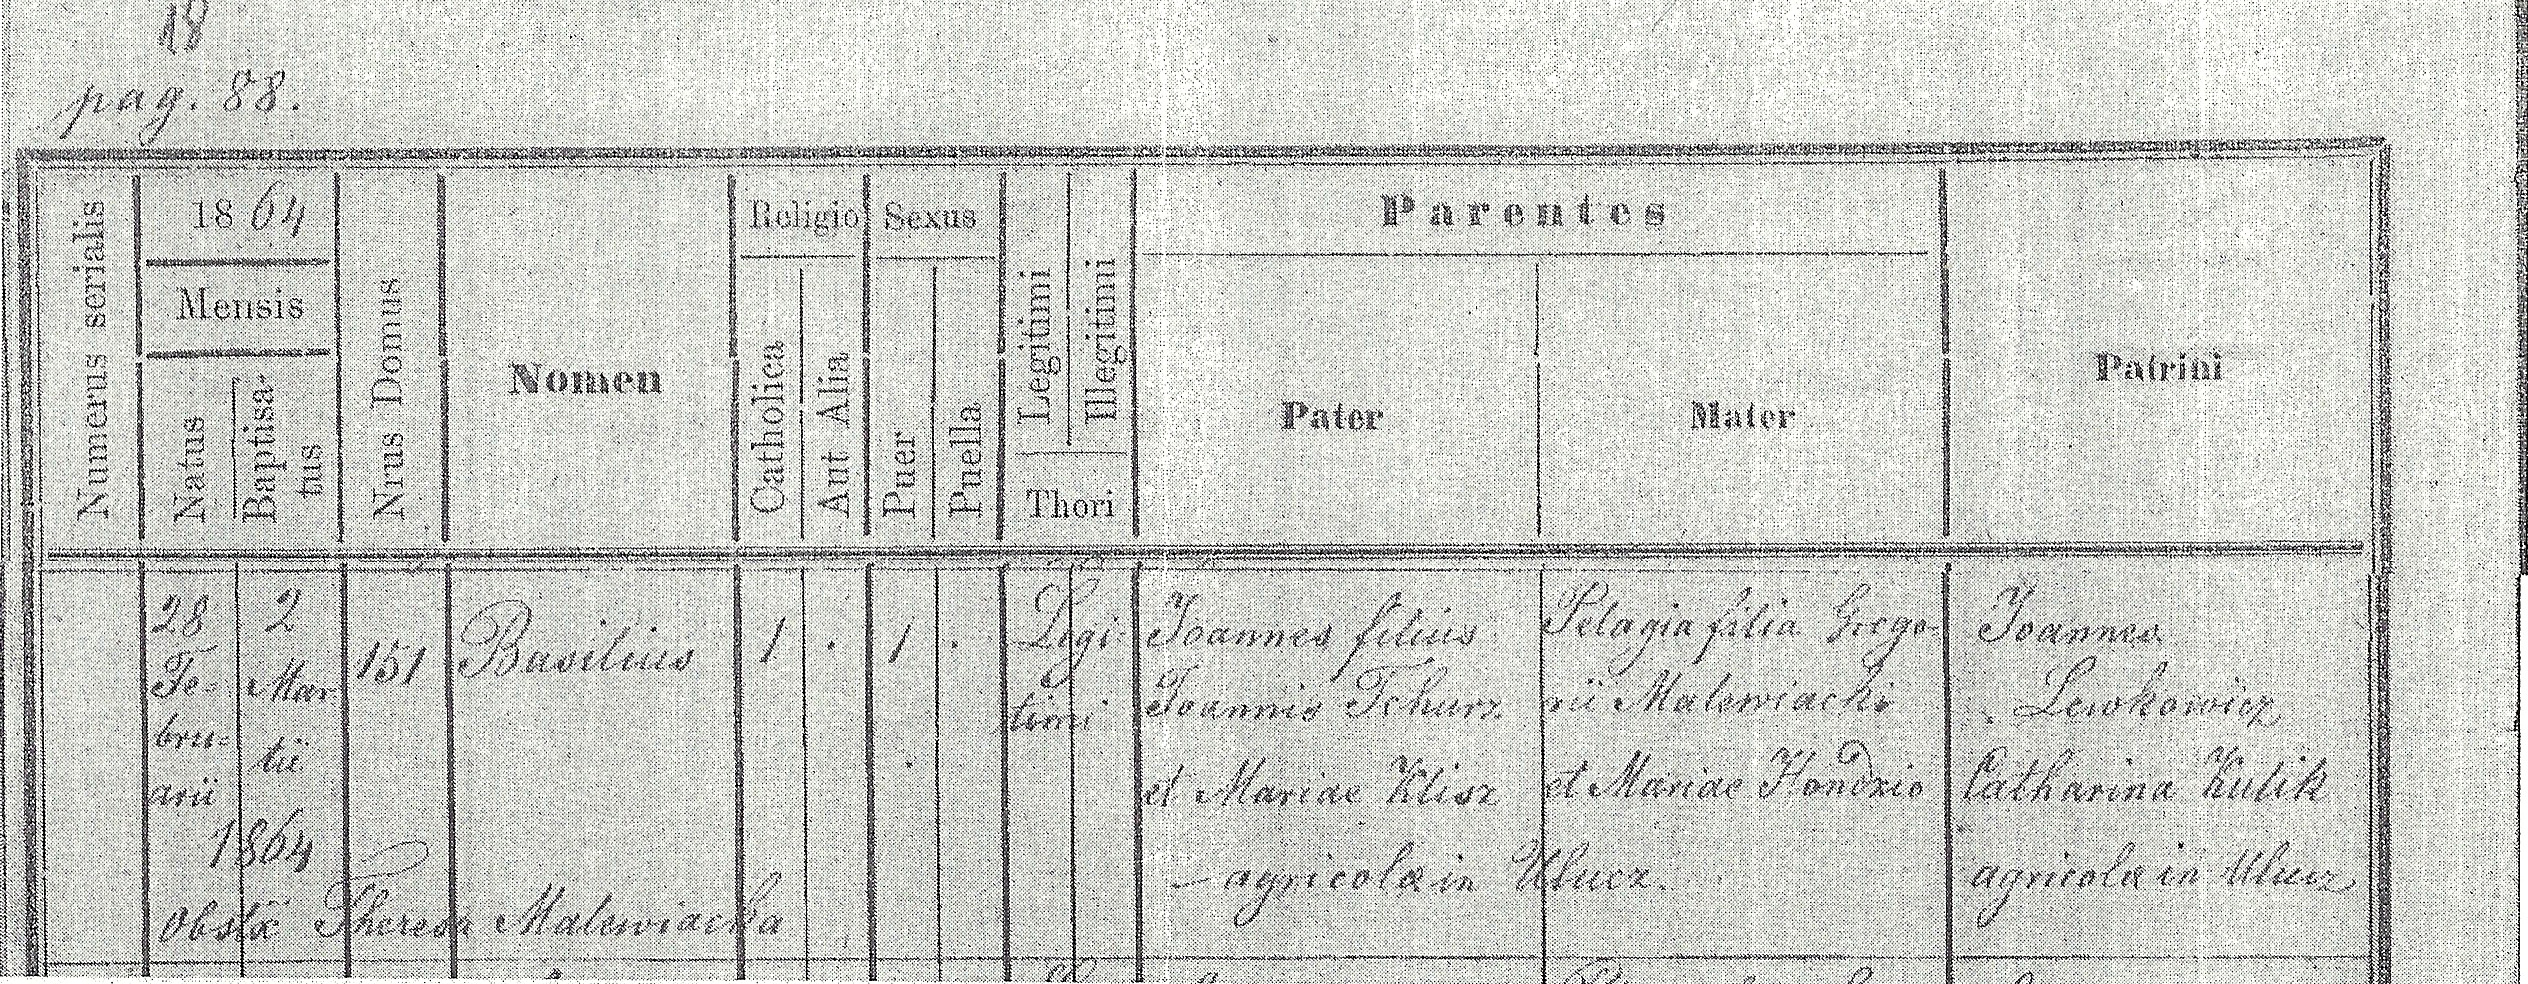 18
pag. 88.
Numerus serialis
1864
Mensis
Natus
Baptisa-
tus
Nrus Domus
Nomen
Religio
Catholica
Aut Alia
Sexus
Puer
Puella
Legitimi
Illegitimi
Thori
Parentes
Pater
Mater
Patrini
28
Fe-
bru-
arii
2
Mar
tii
1864
151
Basilius
1 . 1 .
Legi-
timi
Joannes filius
Joannis Tchurz
et Mariae Klisz
Pelagia filia Grego-
rii Malewiacki
et Mariae Hondzio
agricolæ in Ulucz.
Joannes
Lewkowicz
Catharina Kulik
agricolæ in Ulucz
Obstæ Theresa Malewiacka